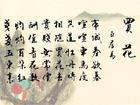 買花
白居易
帝城春欲暮
喧喧車馬度
共道牡丹時
相隨買花去
貴賤無常價
酬直看花數
灼灼百朵紅
戔戔五束素